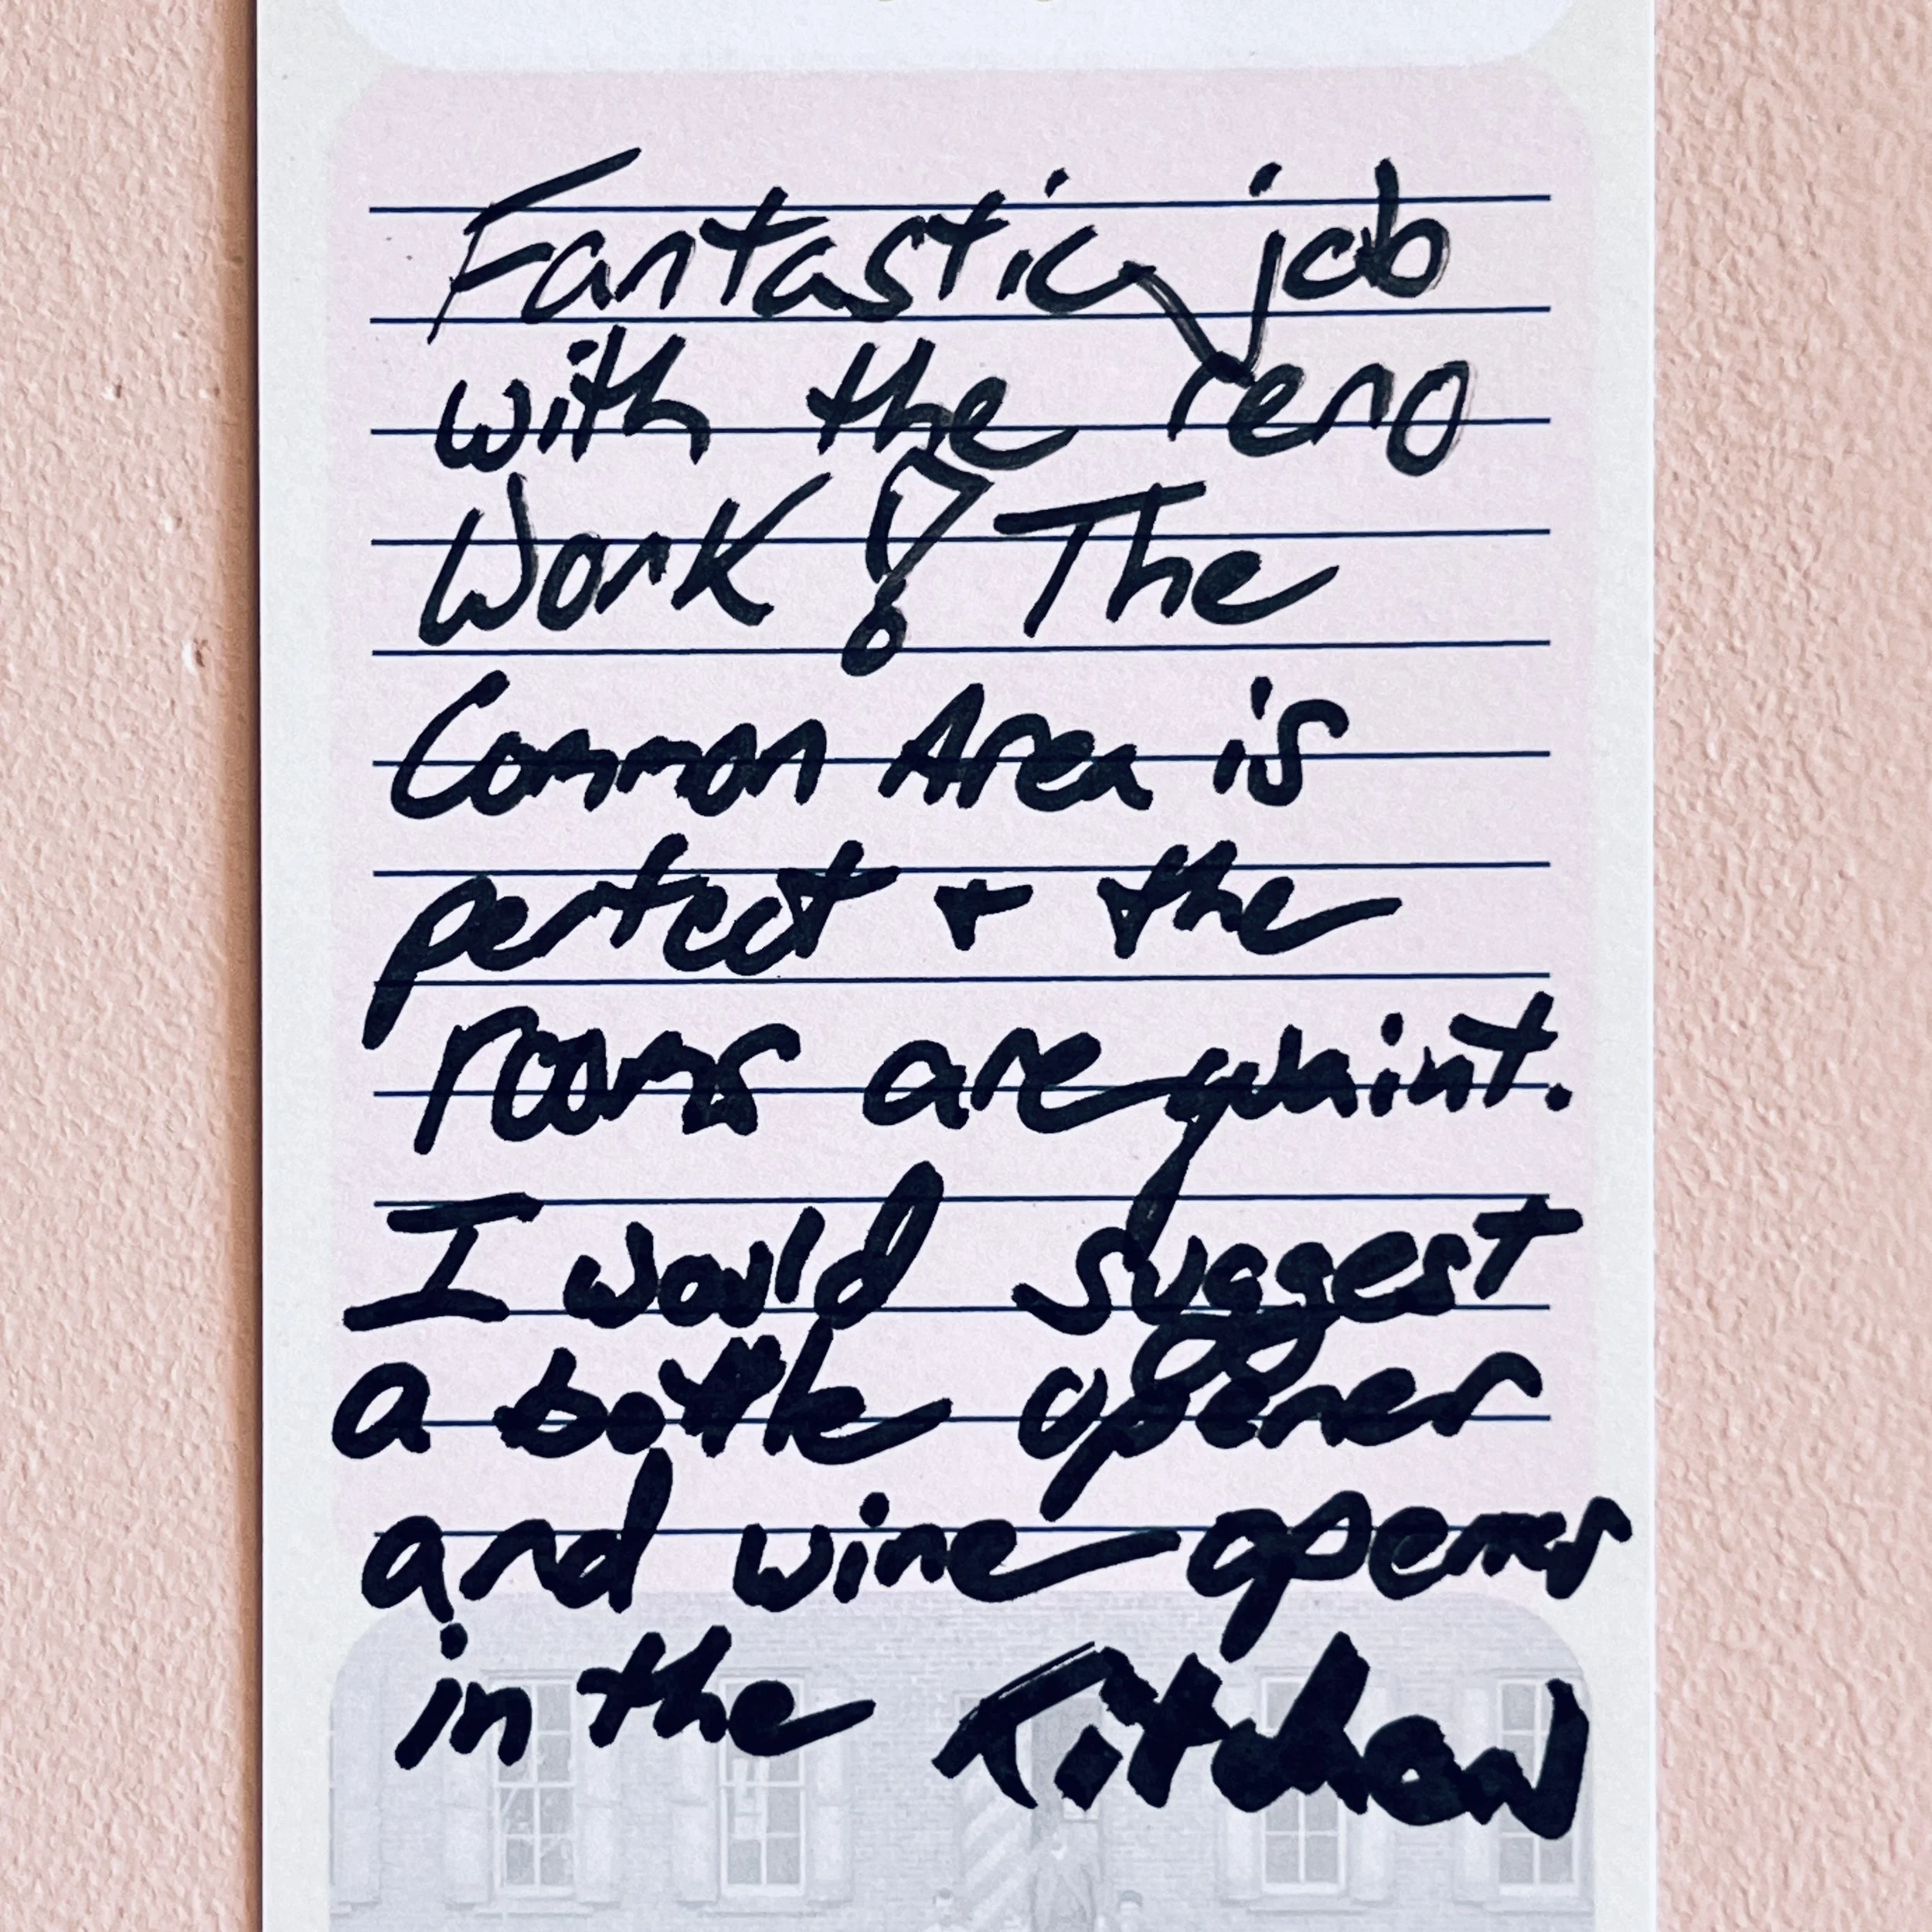 Fantastic job
with the reno
Work! The
Common Area is
perfect + the
rooms are quaint.
I would suggest
a bottle opener
and wine opener
in the Kitchen